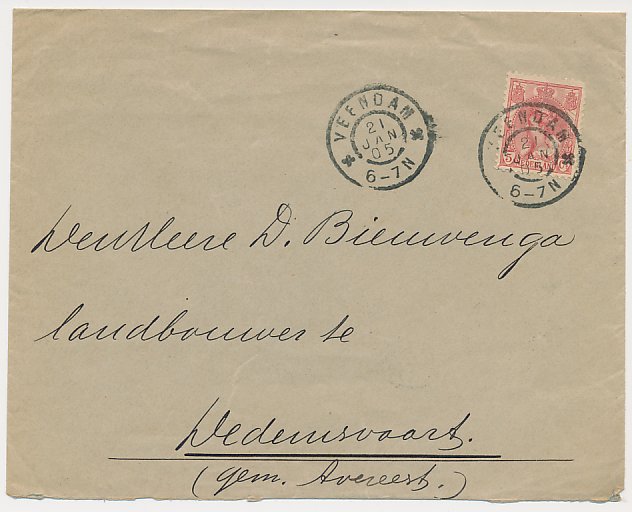 VEENDAM
21
JAN
05
6-7N
VEENDAM
21
JAN
05
6-7N
Den Heere D. Bieuwenga
landbouwer te
Dedemsvaart.
(gem. Avereest.)